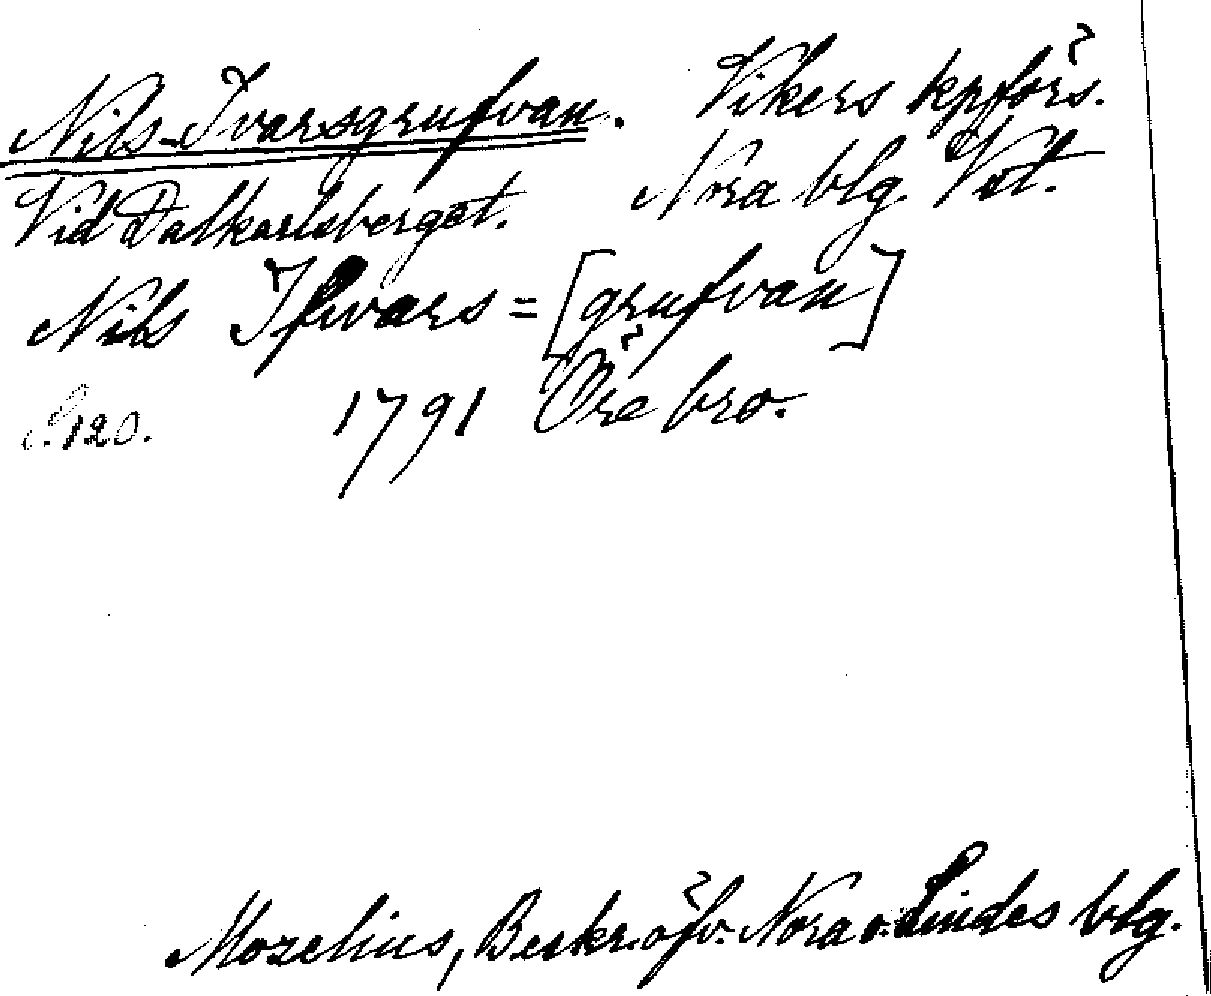 Nils-Ivarsgrufvan. Vikers kpförs.
Vid Dalkarlsberget. Nora blg. Vst.
Nils Ifwars=[grufvan]
S. 120. 1791 Örebro.
Mozelius, Beskr. öfv. Nora o. Lindes blg.